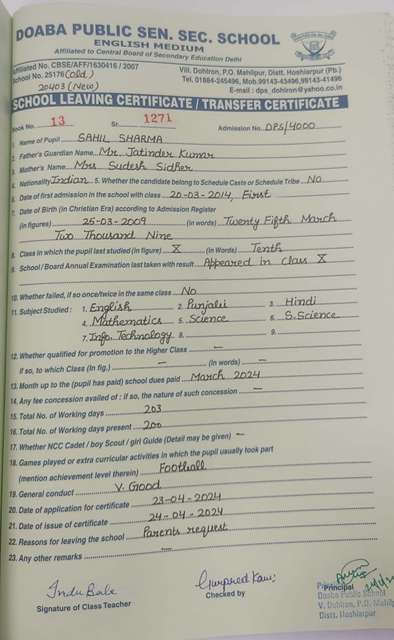 DOABA PUBLIC SEN. SEC. SCHOOL
ENGLISH MEDIUM
Affiliated to Central Board of Secondary Education Delhi
Affiliated No. CBSE/AFF/1630416 / 2007
School No. 25176 (Old)
20403 (New)
Vill. Dohlron, P.O. Mahilpur, Distt. Hoshiarpur (Pb.)
Tel. 01884-245496, Mob.99143-45496,99143-41496
E-mail : dps_dohlron@yahoo.co.in
SCHOOL LEAVING CERTIFICATE / TRANSFER CERTIFICATE
Book No. 13 Sr. 1271 Admission No. DPS/4000
1. Name of Pupil SAHIL SHARMA
2. Father's Guardian Name Mr. Jatinder Kumar
3. Mother's Name Mrs Sudesh Sidher
4. Nationality Indian 5. Whether the candidate belong to Schedule Caste or Schedule Tribe No
6. Date of first admission in the school with class 20-03-2014, First
7. Date of Birth (in Christian Era) according to Admission Register
(in figures) 25-03-2009 (in words) Twenty Fifth March
Two Thousand Nine
8. Class in which the pupil last studied (in figure) X (in Words) Tenth
9. School / Board Annual Examination last taken with result Appeared in class X
10. Whether failed, if so once/twice in the same class No
11. Subject Studied : 1. English 2. Punjabi 3. Hindi
4. Mathematics 5. Science 6. S.Science
7. Info. Technology 8. 9.
12. Whether qualified for promotion to the Higher Class –
if so, to which Class (In fig.) – (In words) –
13. Month up to the (pupil has paid) school dues paid March 2024
14. Any fee concession availed of : if so, the nature of such concession –
15. Total No. of Working days 203
16. Total No. of Working days present 200
17. Whether NCC Cadet / boy Scout / girl Guide (Detail may be given) –
18. Games played or extra curricular activities in which the pupil usually took part
(mention achievement level therein) Football
19. General conduct V. Good
20. Date of application for certificate 23-04-2024
21. Date of issue of certificate 24-04-2024
22. Reasons for leaving the school Parents request
23. Any other remarks –
Indu Bala
Signature of Class Teacher
Gurpreet Kaur
Checked by
Principal
Doaba Public School
V. Dohlron, P.O. Mahilpur
Distt. Hoshiarpur